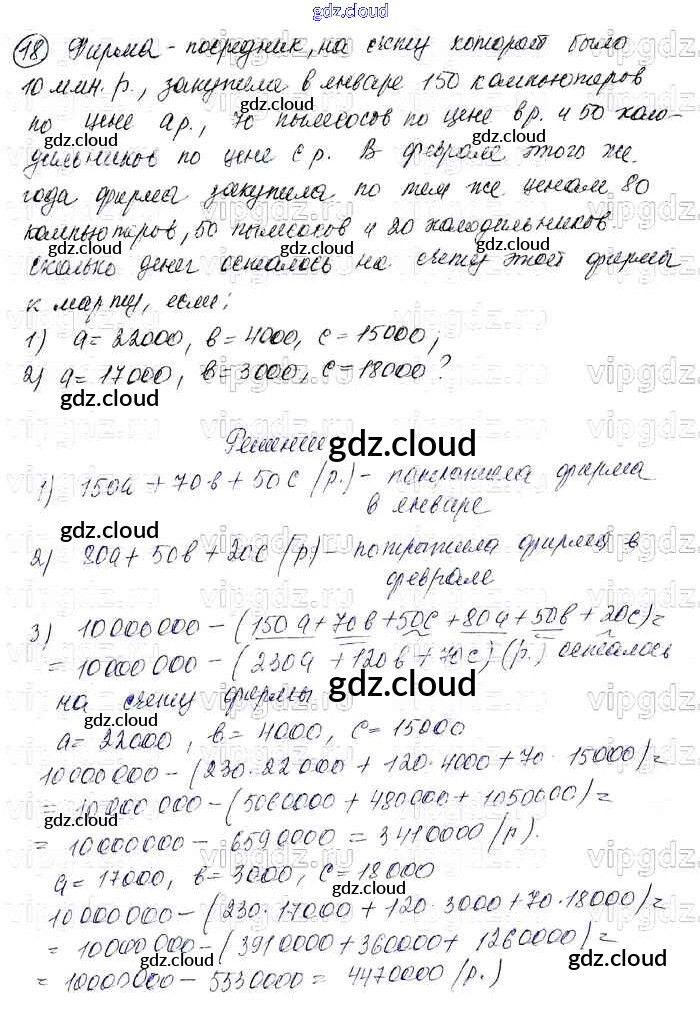 gdz.cloud
18 Фирма - посредник, на счету которой было
10 млн. р., закупила в январе 150 компьютеров
по цене a р., 70 пылесосов по цене в р. и 50 холо-
дильников по цене с р. В феврале этого же
года фирма закупила по тем же ценам 80
компьютеров, 50 пылесосов и 20 холодильников.
Сколько денег осталось на счету этой фирмы
к марту, если:
1) a = 22000, в = 4000, с = 15000;
2) a = 17000, в = 3000, с = 18000?
gdz.cloud
Решение
gdz.cloud
1) 150a + 70в + 50с (р.) - потратила фирма
в январе
gdz.cloud
2) 80a + 50в + 20с (р) - потратила фирма в
феврале
gdz.cloud
3) 10000000 - (150a + 70в + 50с + 80a + 50в + 20с) =
= 10000000 - (230a + 120в + 70с) (р.) осталось
на счету фирмы
gdz.cloud
a = 22000, в = 4000, с = 15000
10000000 - (230·22000 + 120·4000 + 70·15000) =
= 10000000 - (5060000 + 480000 + 1050000) =
gdz.cloud
= 10000000 - 6590000 = 3410000 (р).
a = 17000, в = 3000, с = 18000
gdz.cloud
10000000 - (230·17000 + 120·3000 + 70·18000) =
= 10000000 - (3910000 + 360000 + 1260000) =
gdz.cloud
= 10000000 - 5530000 = 4470000 (р.)